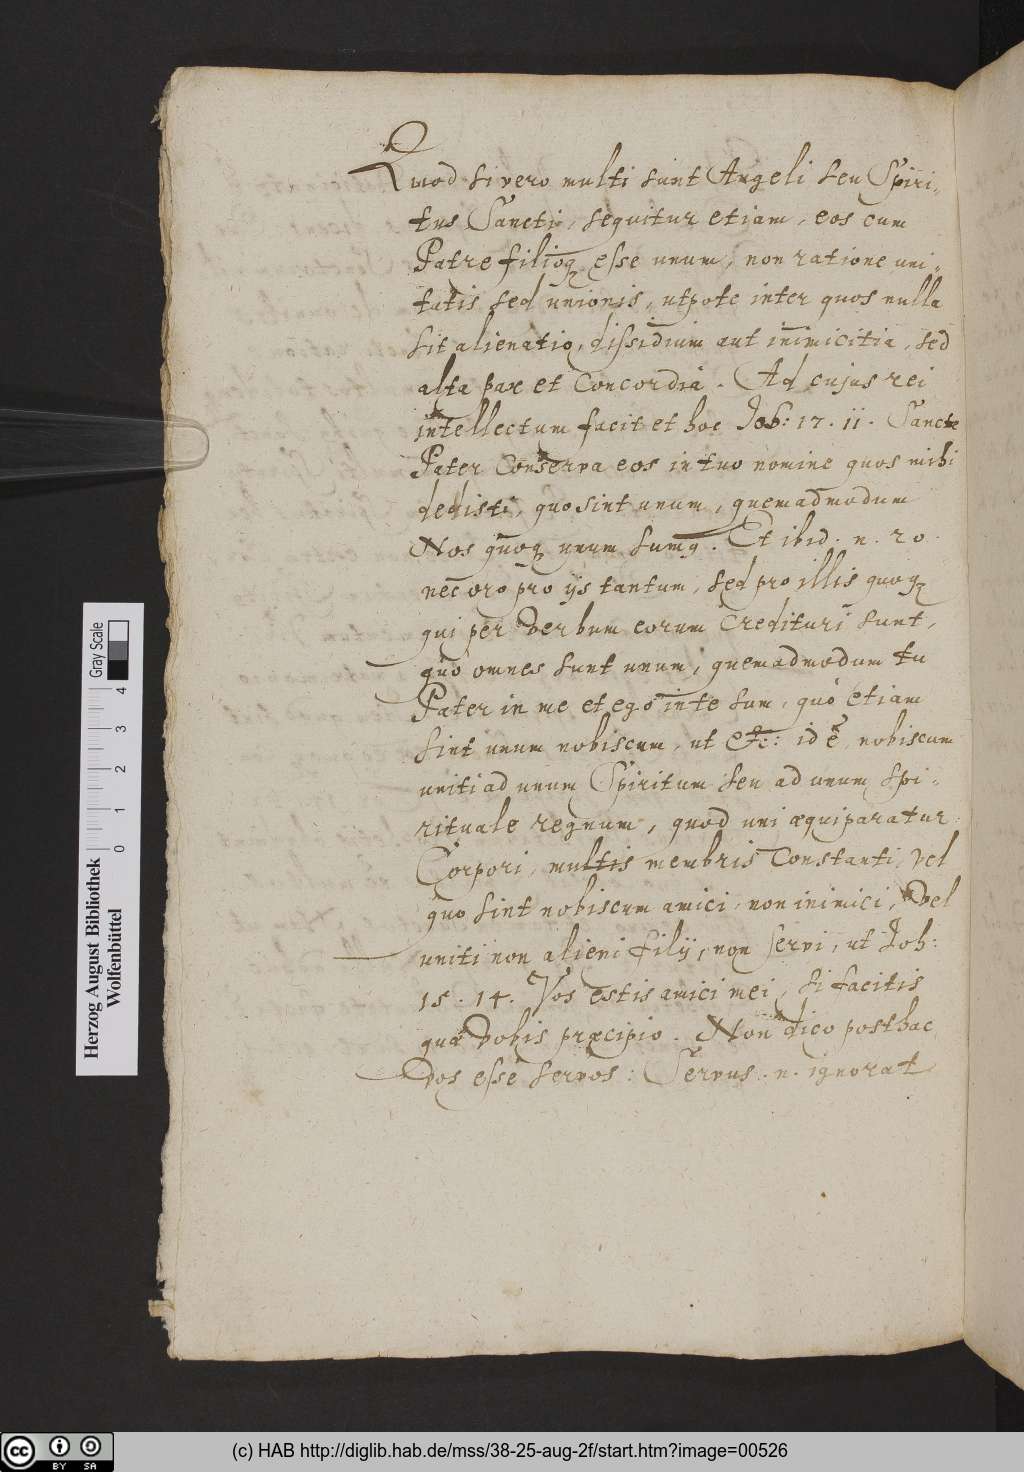 Quod si vero multi sunt Angeli seu Spiri-
tus Sancti, sequitur etiam, eos cum
Patre filioq; esse unum, non ratione uni-
tatis sed unionis, utpote inter quos nulla
sit alienatio, dissidium aut inimicitia, sed
alta pax et Concordia. Ad cujus rei
intellectum facit et hoc Joh: 17. 11. Sancte
Pater Conserva eos in tuo nomine quos mihi
dedisti, quo sint unum, quemadmodum
Nos quoq; unum sumꝯ. Et ibid. n. 20.
nec oro pro ijs tantum, sed pro illis quoq;
qui per Verbum eorum Credituri sunt,
quo omnes sunt unum, quemadmodum tu
Pater in me et ego in te sum, quo etiam
sint unum nobiscum, ut etc: id ē, nobiscum
uniti ad unum Spiritum seu ad unum Spi-
rituale regnum, quod uni æquiparatur
Corpori, multis membris Constanti, vel
quo sint nobiscum amici, non inimici, Vel
uniti non alieni filij, non servi, ut Joh:
15. 14. Vos estis amici mei, si facitis
quæ Vobis præcipio. Non dico posthac
Vos esse servos: Servus. n. ignorat
Herzog August Bibliothek
Wolfenbüttel
0 1 2 3 4
Gray Scale
cc BY SA
(c) HAB http://diglib.hab.de/mss/38-25-aug-2f/start.htm?image=00526